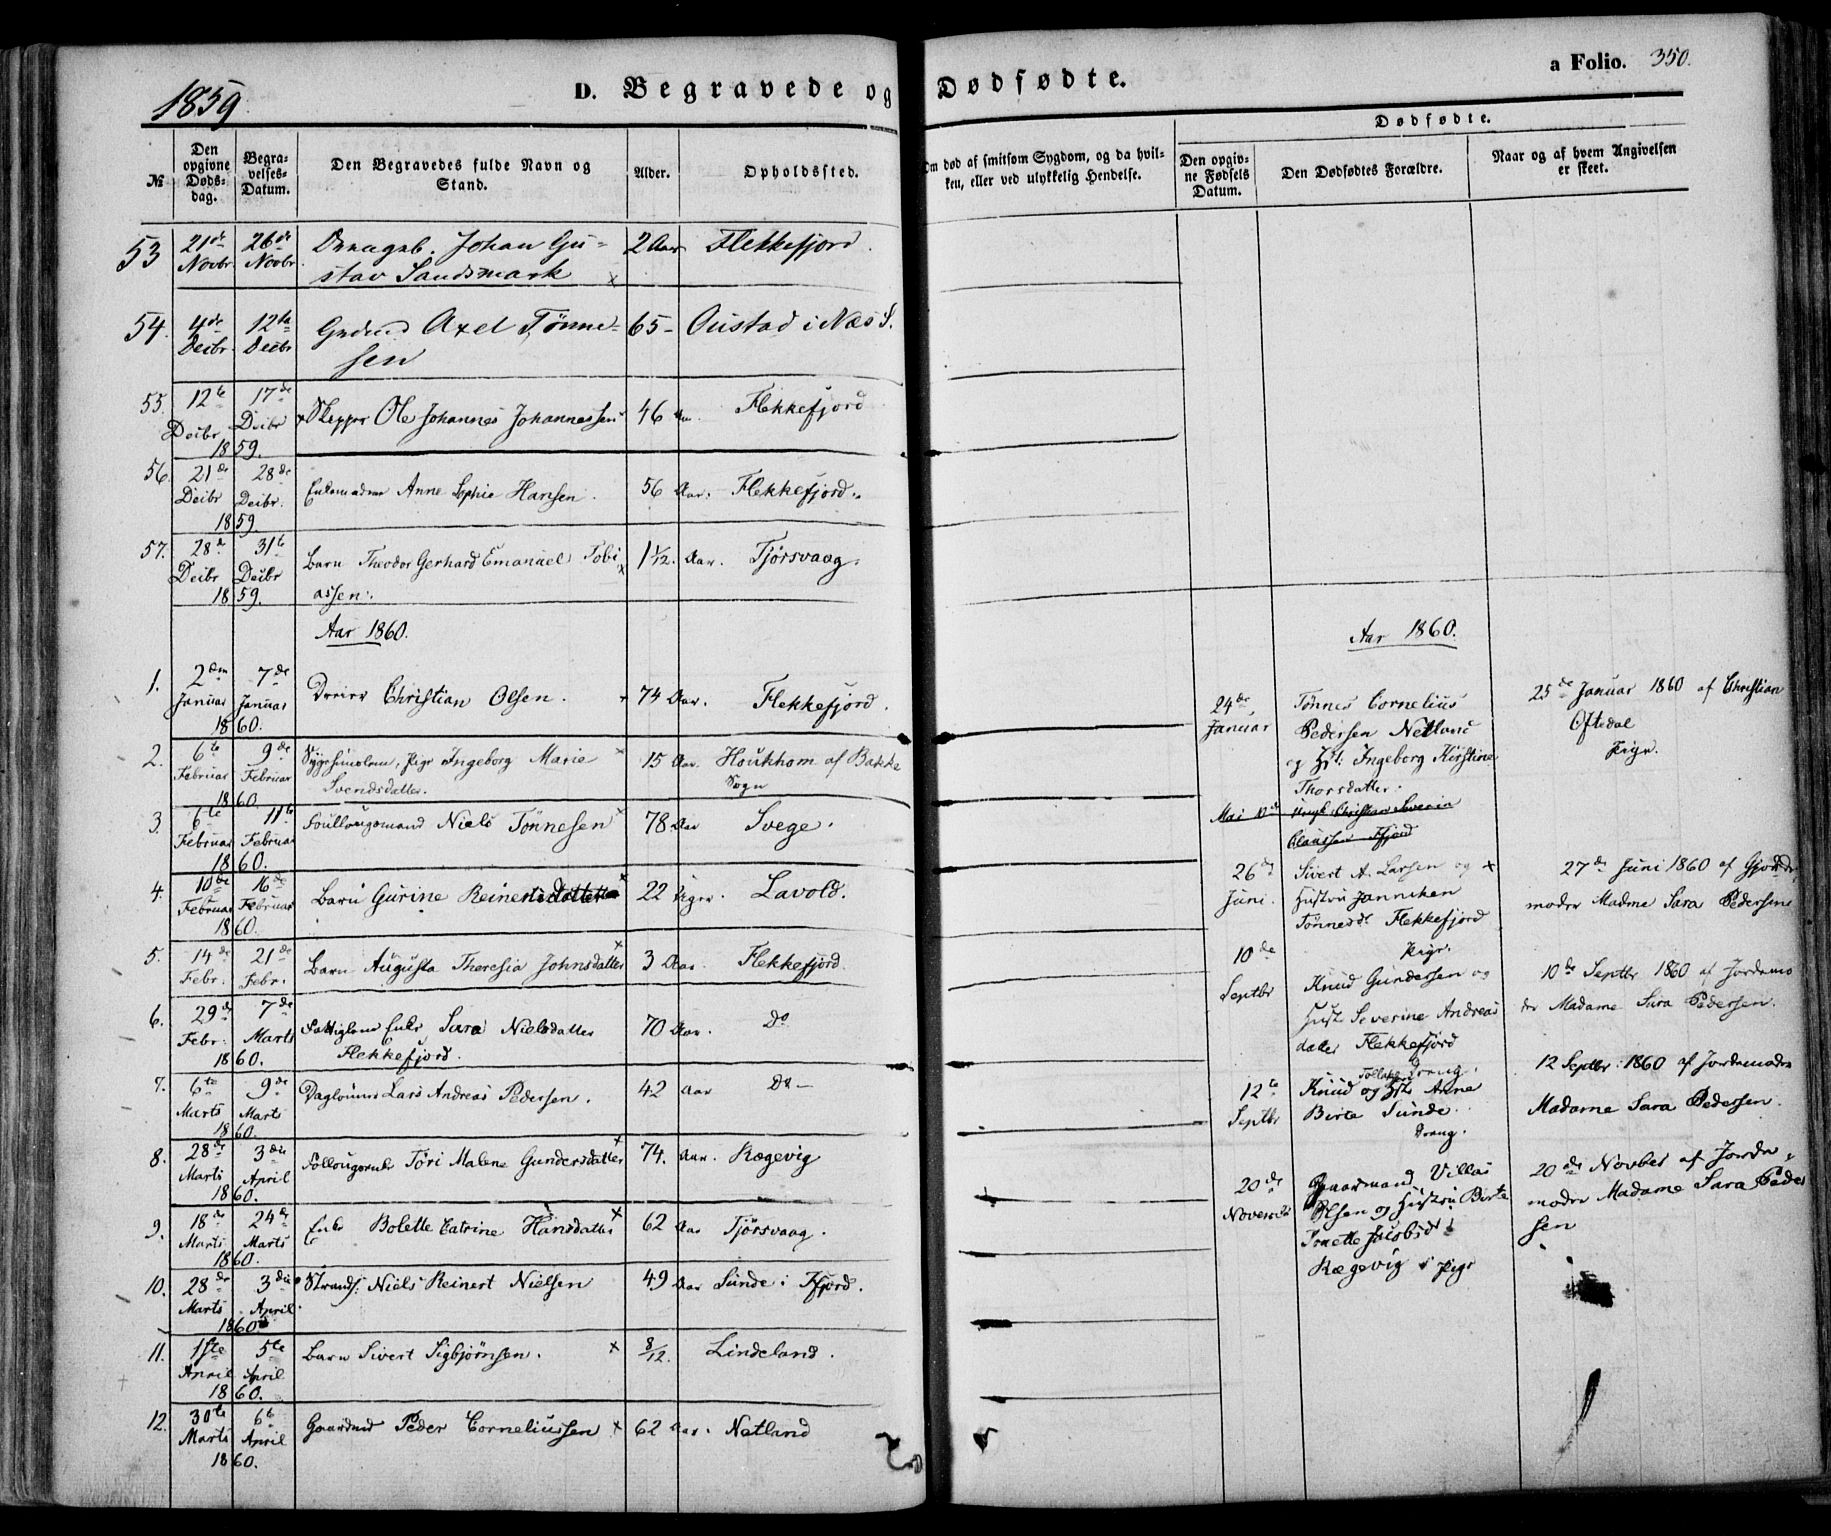 1859.
D. Begravede og Dødfødte.
a Folio. 350.
№
Den opgivne Døds-dag.
Begra-velses-Datum.
Den Begravedes fulde Navn og Stand.
Alder.
Opholdssted.
Om død af smitsom Sygdom, og da hvil-
ken, eller ved ulykkelig Hendelse.
Dødfødte.
Den opgiv-ne Fødsels Datum.
Den Dødfødtes Forældre.
Naar og af hvem Angivelsen er skeet.
53 21de Novbr. 26de Novbr. Johan Gu-
stav Sandsmark x 2 Aar Flekkefjord.
54. 4de Decbr. 12te Decbr Axel Tønne-
sen 65 - Oustad i Næs S.
55. 12te Decbr 17de Decbr 1859. Skipper Ole Johannes Johannessen 46 Aar Flekkefjord
56. 21de Decbr 28de Decbr. 1859. Enkemadam Anne Sophie Hansen. 56 Aar. Flekkefjord.
57. 28de Decbr 31te Decbr 1859. Barn Theodor Gerhard Emanuel Tobi
assen. x 1 1/12. Aar. Tjørsvaag.
Aar 1860.
1. 2den Januar 7de Januar 1860. Dreier Christian Olsen. 74 Aar. Flekkefjord.
2. 6te Februar 9de Februar 1860. Pige Ingeborg Marie x
Svendsdatter. 15 Aar. Houkhom af Bakke
Sogn
3. 6te Februar 11te Februar 1860. Foullougsmand Niels Tønnesen x 78 Aar Svege.
4. 10de Februar 16de Februar 1860. Barn Gurine Reinertsdatter x 22 Uger. Lavold.
5. 14de Febr. 21de Febr. Barn Augusta Theresia Johnsdatter x 3 Aar. Flekkefjord.
6. 29de Febr. 7de Marts 1860. Fattiglem Enke Sara Nielsdatter
Flekkefjord. 70 Aar. Do
7. 6te Marts 9de Marts 1860. Daglønner Lars Andreas Pedersen. 42 Aar Do -
8. 28de Marts 3die April 1860. Follougsenke Tøri Malene Gundersdatter x 74. Aar. Rægevig
9. 18de Marts 24de Marts 1860. Enke Bolette Catrine Hansdatter x 62 Aar Tjørsvaag.
10. 28de Marts 3die April 1860. Strands. Niels Reinert Nielsen 49 Aar Sunde i Ffjord.
11. 1ste April 5te April 1860. Barn Sivert Sigbjørnsen. x 8/12. Lindeland.
12. 30te Marts 6te April 1860. Gaardmd Peder Corneliussen x 62 Aar. Netland
Aar 1860.
24de Januar Tønnes Cornelius
Pedersen Netland
og Hst: Ingeborg Kirstine
Thorsdatter.
25de Januar 1860 af Christian
Oftedal
Pige.
Mai Christian Severin
Claussen Ffjord
26de Juni. Sivert A. Larsen og x
Hustru Janniken
Tønnesd. Flekkefjord
Pige.
27de Juni 1860 af Gjorde-
moder Madme Sara Pedersen
10de Septbr Knud Gundersen og
Hust Severine Andreas
datter Flekkefjord
Dreng.
10de Septbr 1860 af Jordemo
der Madame Sara Pedersen.
12te Septbr Knud og Hst Anne
Birte Sunde.
Dreng.
12 Septbr. 1860 af Jordemoder
Madame Sara Pedersen.
20de November Gaarmand Villas
Olsen og Hustru Birte
Tonette Jacobsd
Rægevig Pige
20de Novber af Jorde-
moder Madame Sara Peder
sen